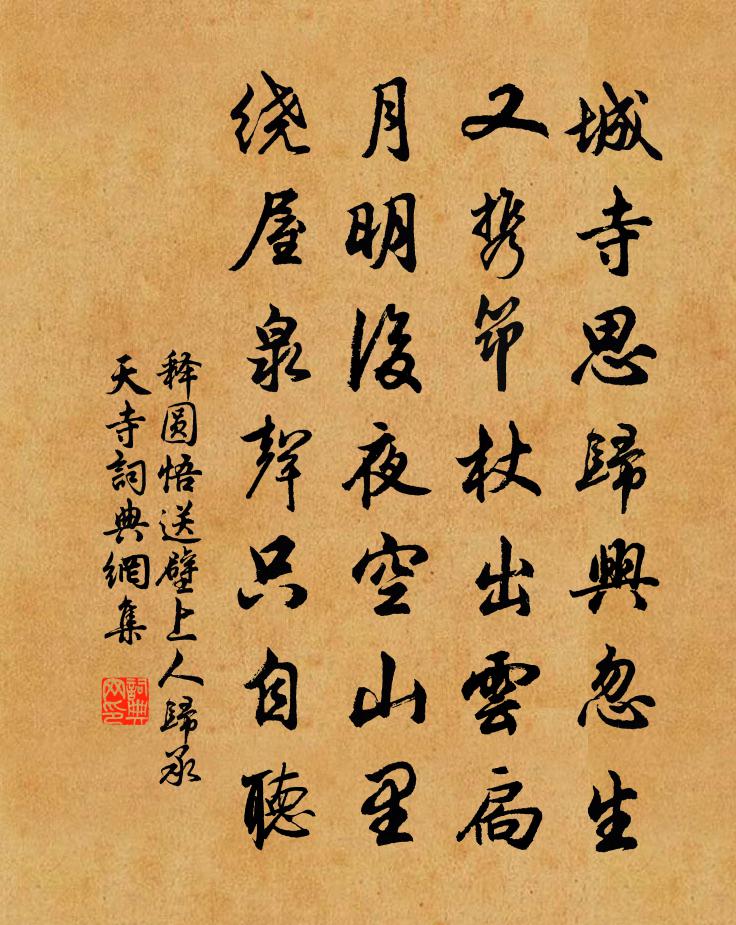 城寺思歸興忽生
又携筇杖出雲扃
月明後夜空山里
绕屋泉聲只自聽
释圆悟送璧上人歸承
天寺詞典網集
詞典
网印